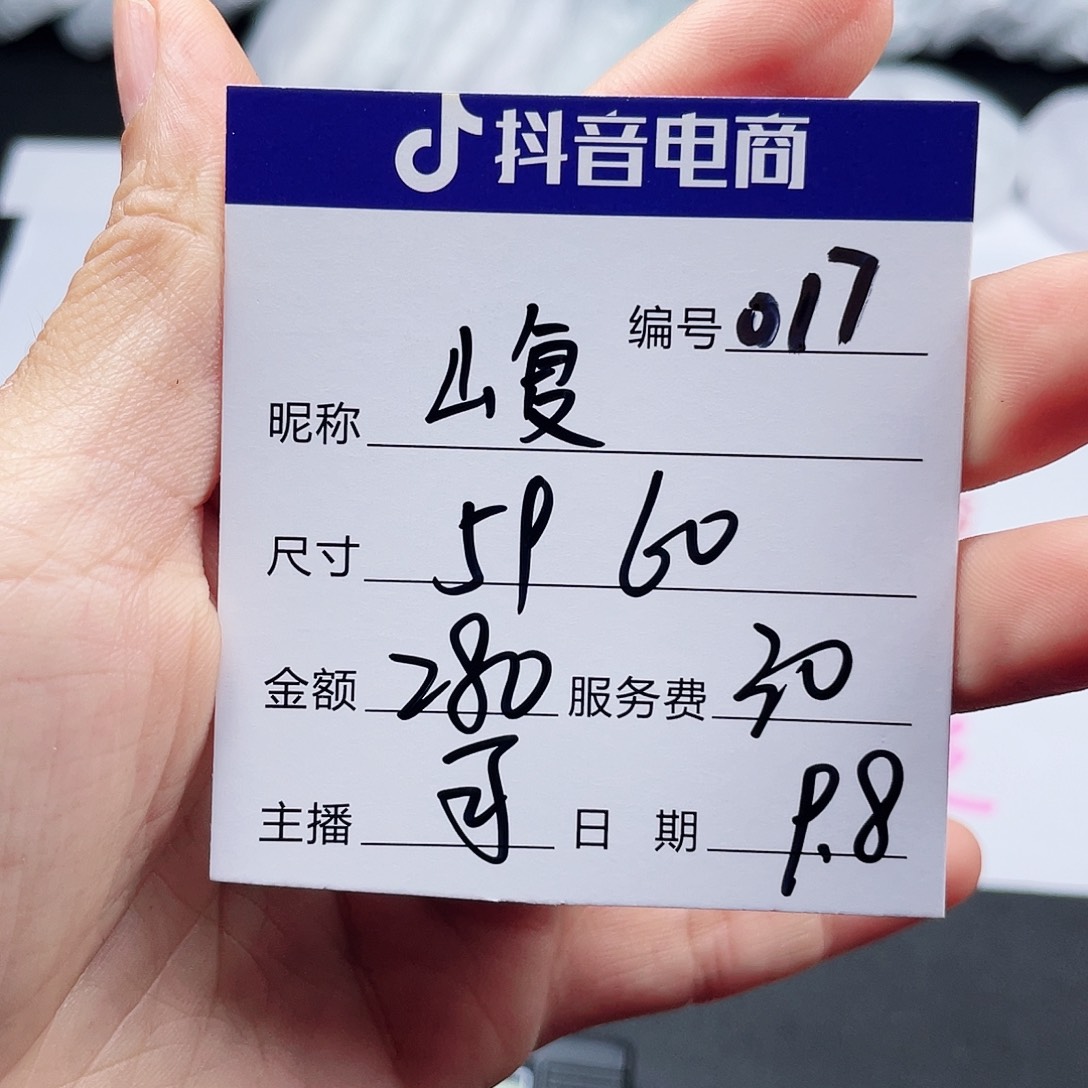 抖音电商
编号 017
昵称 山复
尺寸 59 60
金额 280 服务费 30
主播 日期 9.8